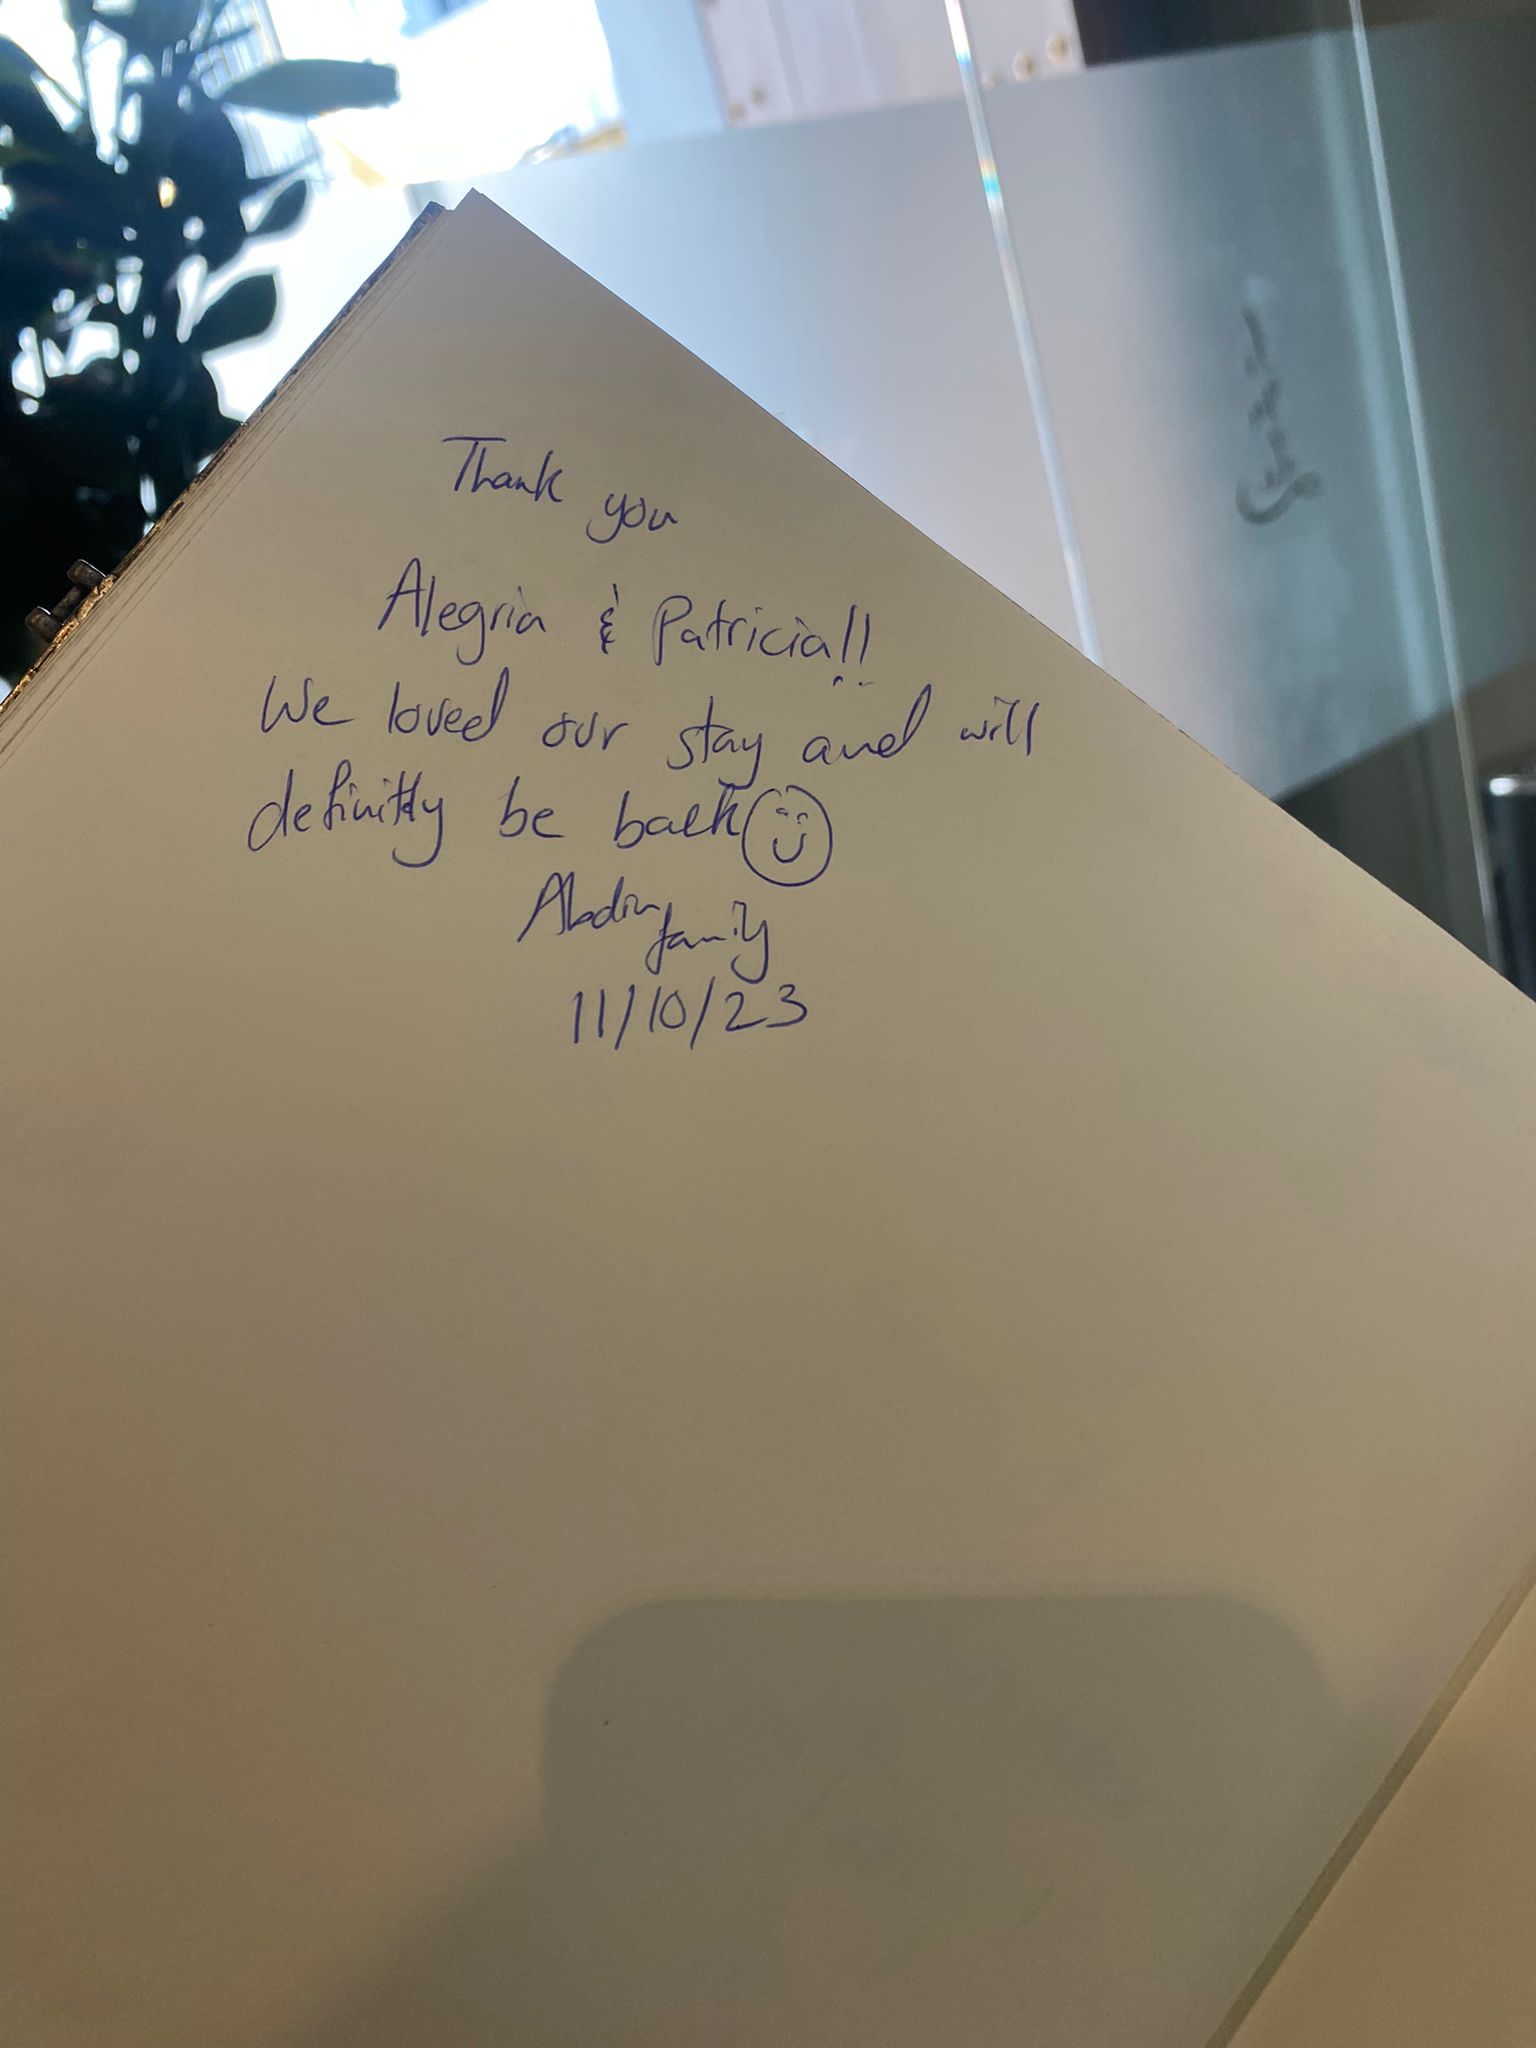 Thank you
Alegria & Patricia!!
We loved our stay and will
definitly be back
Abdin family
11/10/23